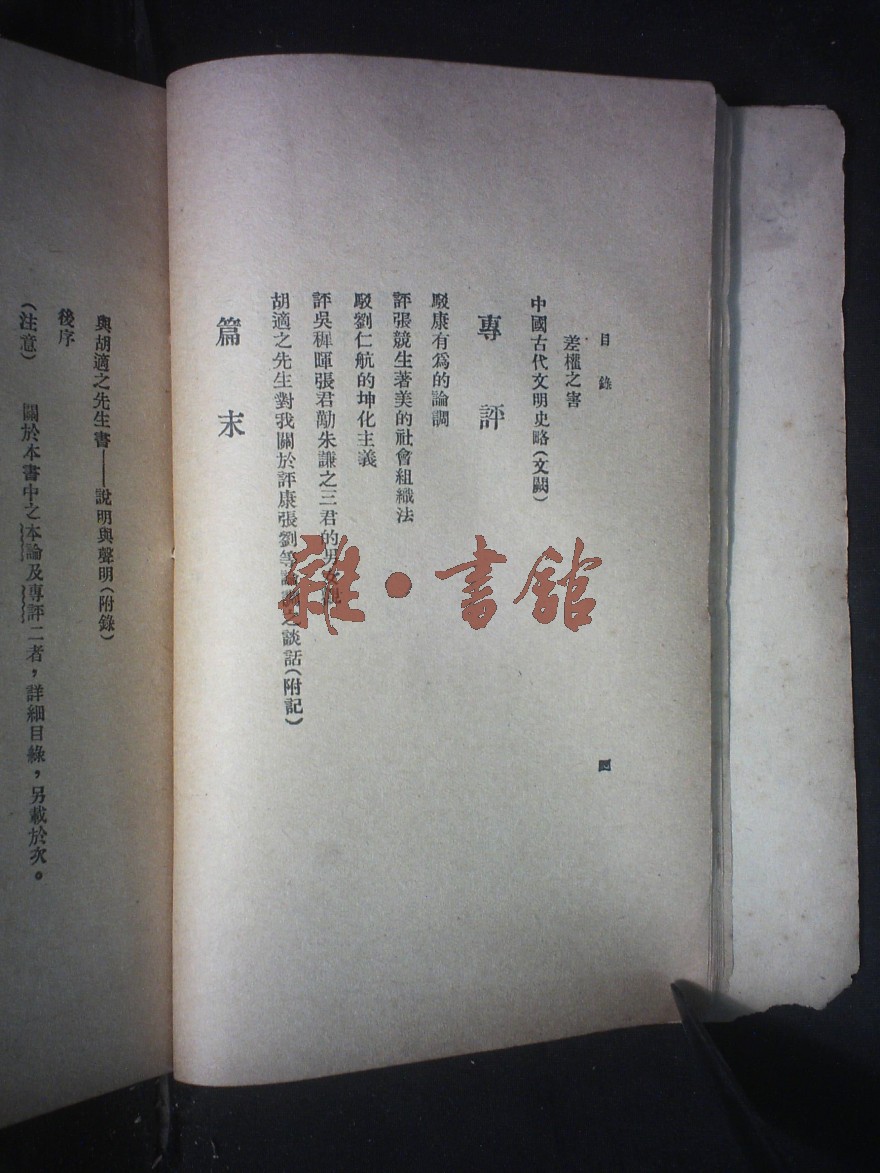 目錄
四
差權之害
中國古代文明史略(文闕)
專評
駁康有為的論調
評張競生著美的社會組織法
駁劉仁航的坤化主義
評吳稚暉張君勱朱謙之三君的男女觀
胡適之先生對我關於評康張劉等論調之談話(附記)
篇末
與胡適之先生書——說明與聲明(附錄)
後序
(注意) 關於本書中之本論及專評二者,詳細目錄,另載於次。
雜·書館